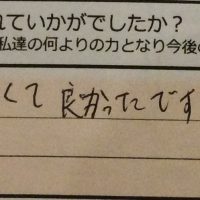 れていかがでしたか？
私達の何よりの力となり今後の
くて 良かったです